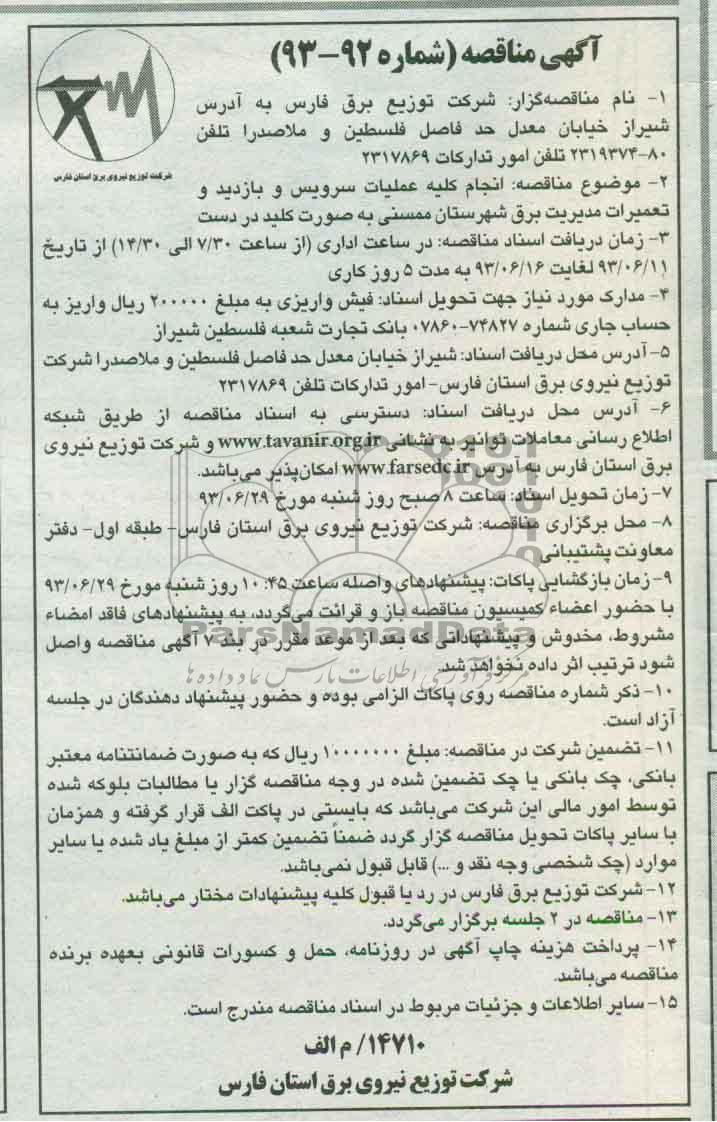 آگهی مناقصه (شماره ۹۲-۹۳)
شرکت توزیع نیروی برق استان فارس
۱- نام مناقصه‌گزار: شرکت توزیع برق فارس به آدرس
شیراز خیابان معدل حد فاصل فلسطین و ملاصدرا تلفن
۸۰-۲۳۱۹۳۷۴ تلفن امور تدارکات ۲۳۱۷۸۶۹
۲- موضوع مناقصه: انجام کلیه عملیات سرویس و بازدید و
تعمیرات مدیریت برق شهرستان ممسنی به صورت کلید در دست
۳- زمان دریافت اسناد مناقصه: در ساعت اداری (از ساعت ۷/۳۰ الی ۱۴/۳۰) از تاریخ
۹۳/۰۶/۱۱ لغایت ۹۳/۰۶/۱۶ به مدت ۵ روز کاری
۴- مدارک مورد نیاز جهت تحویل اسناد: فیش واریزی به مبلغ ۲۰۰۰۰۰ ریال واریز به
حساب جاری شماره ۷۴۸۲۷-۰۷۸۶۰ بانک تجارت شعبه فلسطین شیراز
۵- آدرس محل دریافت اسناد: شیراز خیابان معدل حد فاصل فلسطین و ملاصدرا شرکت
توزیع نیروی برق استان فارس- امور تدارکات تلفن ۲۳۱۷۸۶۹
۶- آدرس محل دریافت اسناد: دسترسی به اسناد مناقصه از طریق شبکه
اطلاع رسانی معاملات توانیر به نشانی www.tavanir.org.ir و شرکت توزیع نیروی
برق استان فارس به آدرس www.farsedc.ir امکان‌پذیر می‌باشد.
۷- زمان تحویل اسناد: ساعت ۸ صبح روز شنبه مورخ ۹۳/۰۶/۲۹
۸- محل برگزاری مناقصه: شرکت توزیع نیروی برق استان فارس- طبقه اول- دفتر
معاونت پشتیبانی
۹- زمان بازگشایی پاکات: پیشنهادهای واصله ساعت ۱۰:۴۵ روز شنبه مورخ ۹۳/۰۶/۲۹
با حضور اعضاء کمیسیون مناقصه باز و قرائت می‌گردد، به پیشنهادهای فاقد امضاء
مشروط، مخدوش و پیشنهاداتی که بعد از موعد مقرر در بند ۷ آگهی مناقصه واصل
شود ترتیب اثر داده نخواهد شد.
۱۰- ذکر شماره مناقصه روی پاکات الزامی بوده و حضور پیشنهاد دهندگان در جلسه
آزاد است.
۱۱- تضمین شرکت در مناقصه: مبلغ ۱۰۰۰۰۰۰۰ ریال که به صورت ضمانتنامه معتبر
بانکی، چک بانکی یا چک تضمین شده در وجه مناقصه گزار یا مطالبات بلوکه شده
توسط امور مالی این شرکت می‌باشد که بایستی در پاکت الف قرار گرفته و همزمان
با سایر پاکات تحویل مناقصه گزار گردد ضمناً تضمین کمتر از مبلغ یاد شده یا سایر
موارد (چک شخصی وجه نقد و ...) قابل قبول نمی‌باشد.
۱۲- شرکت توزیع برق فارس در رد یا قبول کلیه پیشنهادات مختار می‌باشد.
۱۳- مناقصه در ۲ جلسه برگزار می‌گردد.
۱۴- پرداخت هزینه چاپ آگهی در روزنامه، حمل و کسورات قانونی بعهده برنده
مناقصه می‌باشد.
۱۵- سایر اطلاعات و جزئیات مربوط در اسناد مناقصه مندرج است.
۱۴۷۱۰/ م الف
شرکت توزیع نیروی برق استان فارس
ParsNamadData
مرکز فرآوری اطلاعات پارس نماد داده ها